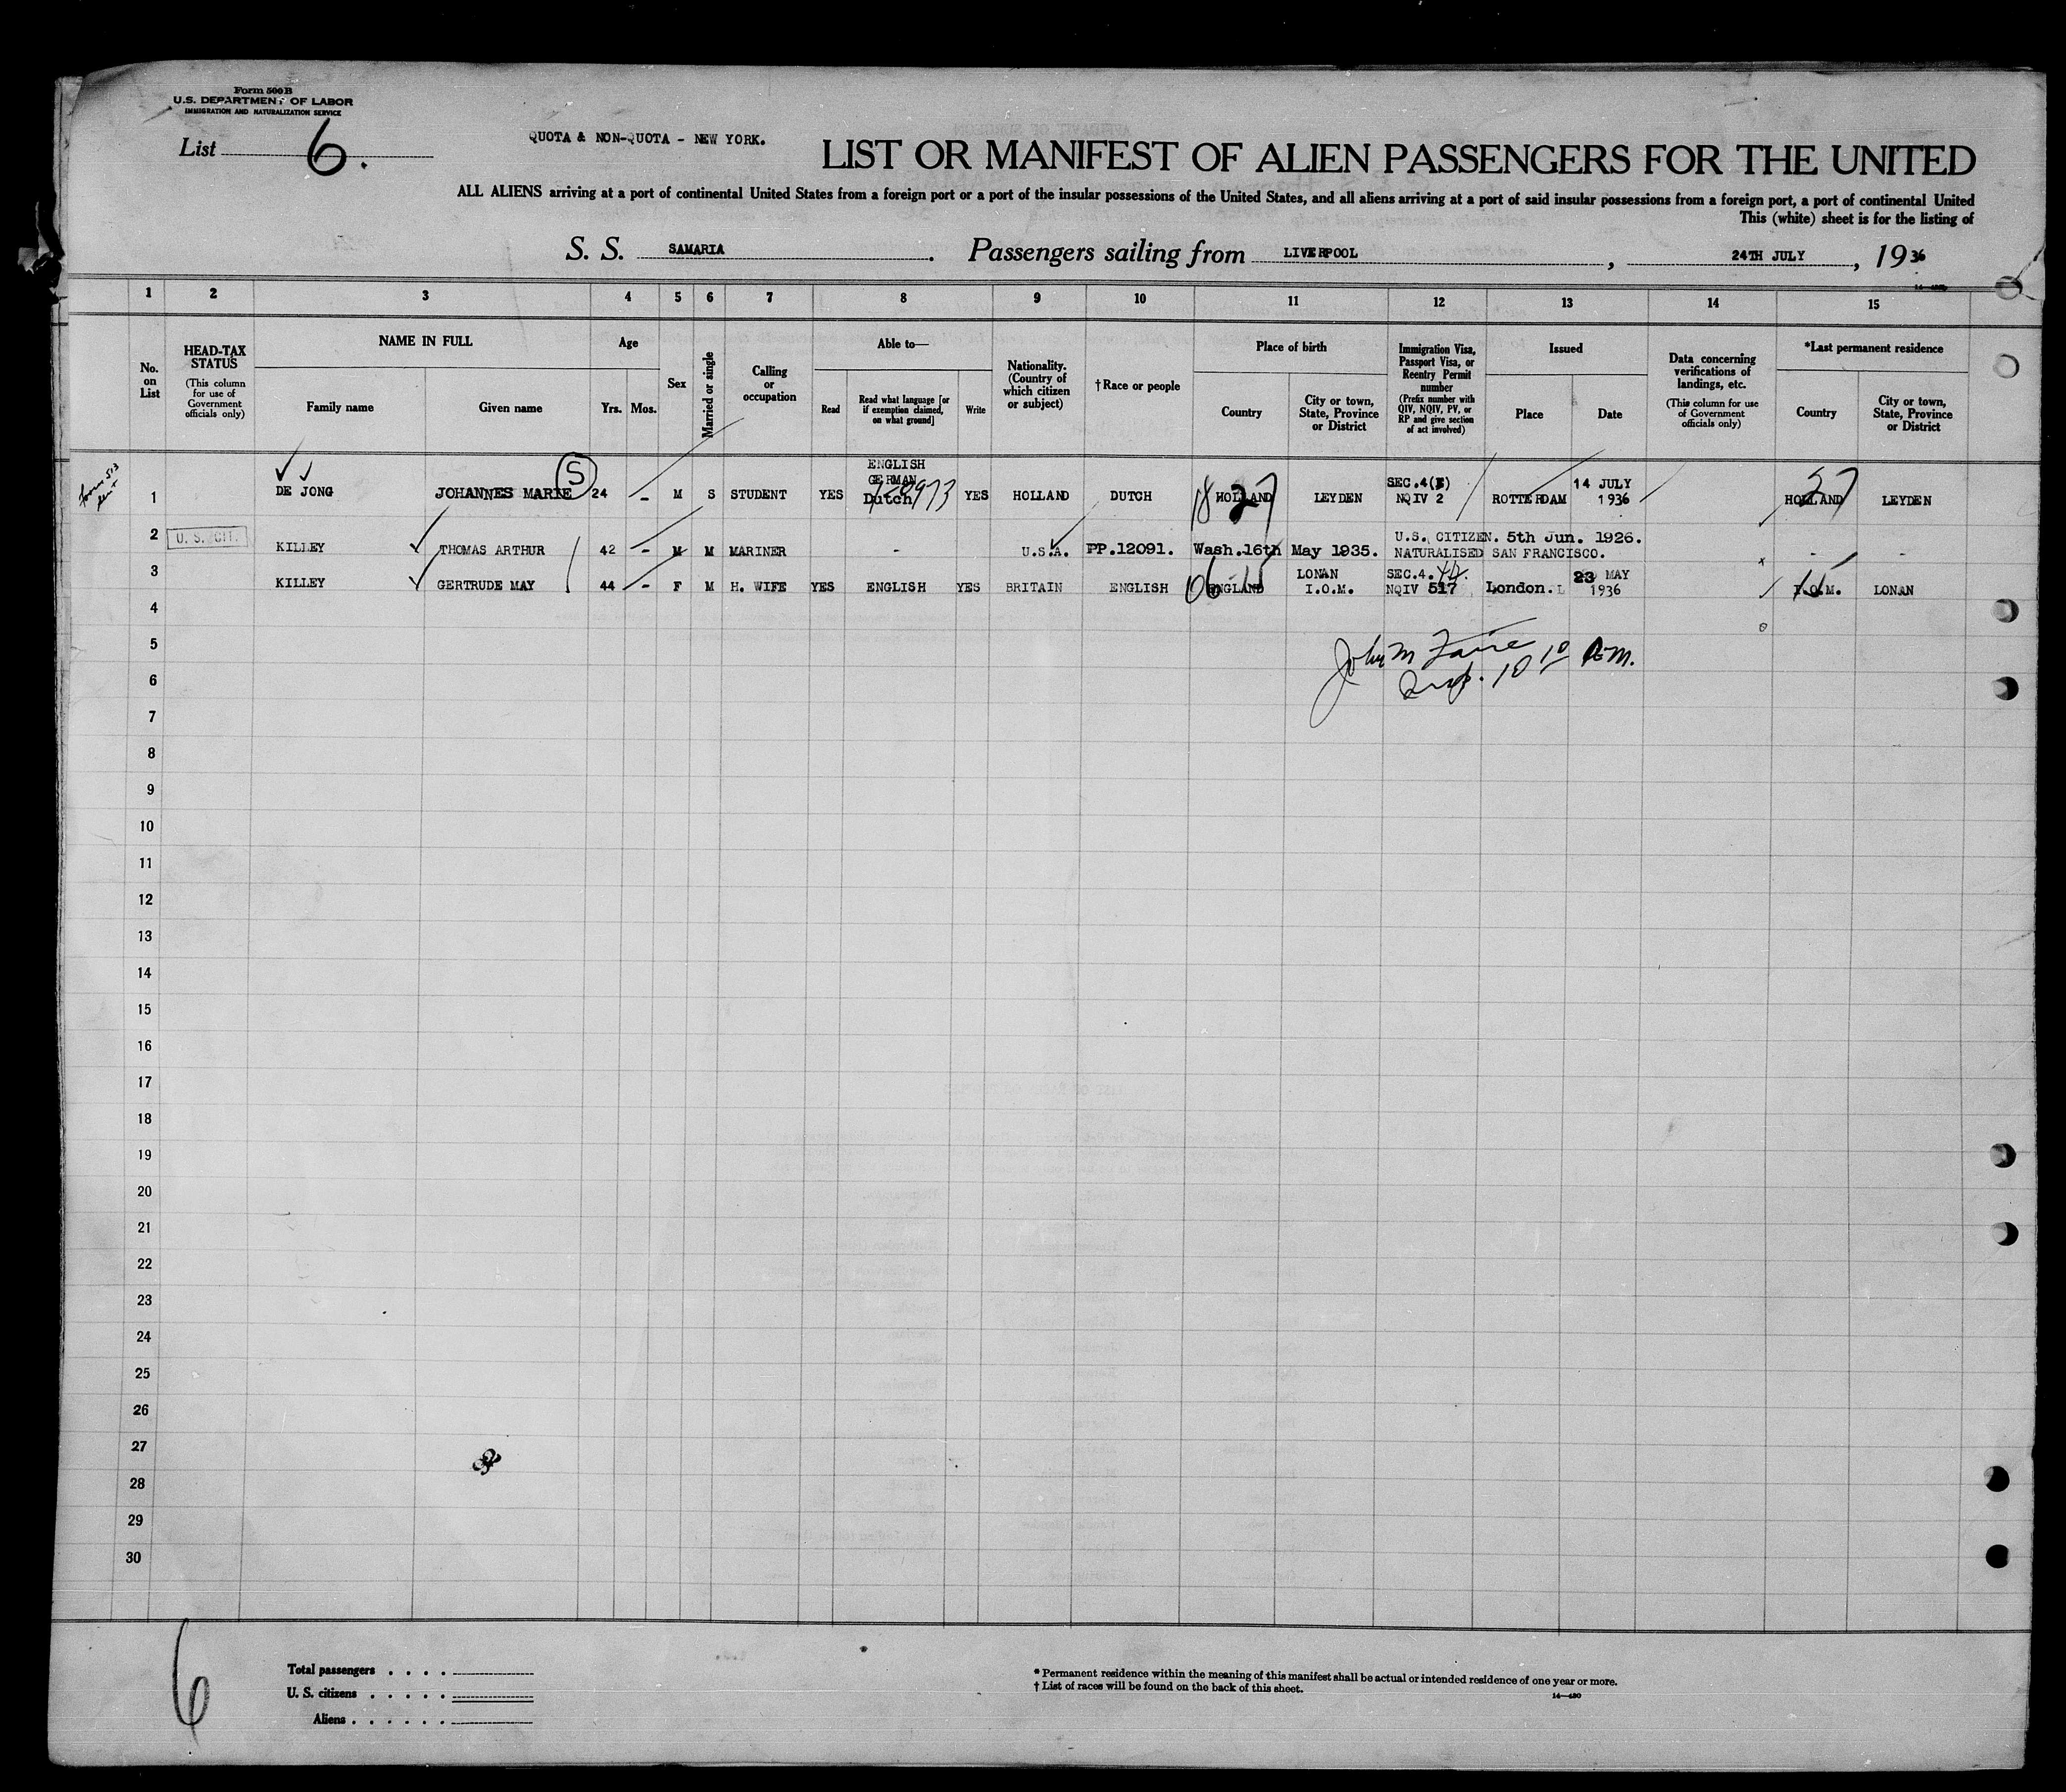 Form 500 B
U.S. DEPARTMENT OF LABOR
IMMIGRATION AND NATURALIZATION SERVICE
List 6.
QUOTA & NON-QUOTA - NEW YORK.
LIST OR MANIFEST OF ALIEN PASSENGERS FOR THE UNITED
ALL ALIENS arriving at a port of continental United States from a foreign port or a port of the insular possessions of the United States, and all aliens arriving at a port of said insular possessions from a foreign port, a port of continental United
This (white) sheet is for the listing of
S. S. SAMARIA. Passengers sailing from LIVERPOOL, 24TH JULY, 1936
1 2 3 4 5 6 7 8 9 10 11 12 13 14 15
No. on List
HEAD-TAX STATUS
(This column for use of Government officials only)
NAME IN FULL
Family name
Given name
Age
Yrs. Mos.
Sex
Married or single
Calling or occupation
Able to—
Read
Read what language [or if exemption claimed, on what ground]
Write
Nationality. (Country of which citizen or subject)
† Race or people
Place of birth
Country
City or town, State, Province or District
Immigration Visa, Passport Visa, or Reentry Permit number
(Prefix number with QIV, NQIV, PV, or RP and give section of act involved)
Issued
Place
Date
Data concerning verifications of landings, etc.
(This column for use of Government officials only)
*Last permanent residence
Country
City or town, State, Province or District
1 DE JONG JOHANNES MARIE S 24 - M S STUDENT YES ENGLISH GERMAN Dutch YES HOLLAND DUTCH 18 27 HOLLAND LEYDEN SEC.4(E) NQIV 2 ROTTERDAM 14 JULY 1936 HOLLAND 27 LEYDEN
2 U. S. CIT. KILLEY THOMAS ARTHUR 42 - M M MARINER - U.S.A. PP.12091. Wash.16th May 1935. U.S. CITIZEN. 5th Jun. 1926. NATURALISED SAN FRANCISCO. - -
3 KILLEY GERTRUDE MAY 44 - F M H. WIFE YES ENGLISH YES BRITAIN ENGLISH 06 ENGLAND LONAN I.O.M. SEC.4. NQIV 517 London. 23 MAY 1936 I.O.M. LONAN
4
5
John M
6
10 10 AM.
7
8
9
10
11
12
13
14
15
16
17
18
19
20
21
22
23
24
25
26
27
28
29
30
6
Total passengers
U. S. citizens
Aliens
* Permanent residence within the meaning of this manifest shall be actual or intended residence of one year or more.
† List of races will be found on the back of this sheet.
14—430